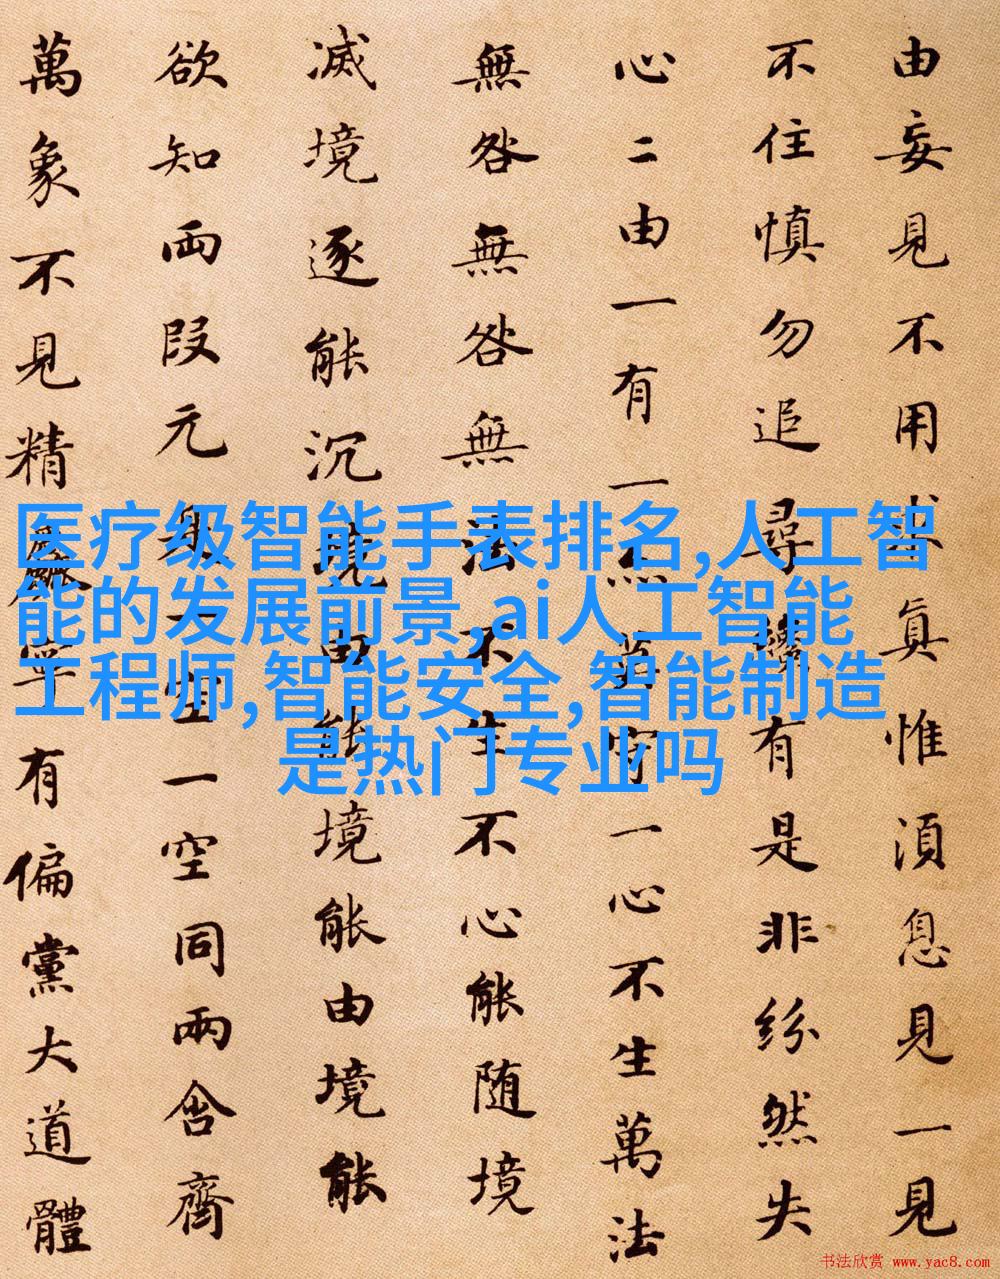 由妄見不用求真惟須息見一見
不住慎勿追尋纔有是非紛然失
心二由一有一莫守一心不生萬法
無咎無咎無法不生不心能随境
滅境逐能沉境由能境能由境能
欲知兩段元是一空一空同兩含齊
萬象不見精麁寧有偏黨大道體
医疗级智能手表排名,人工智
能的发展前景,ai人工智能
工程师,智能安全,智能制造
是热门专业吗
书法欣赏 www.yac8.com